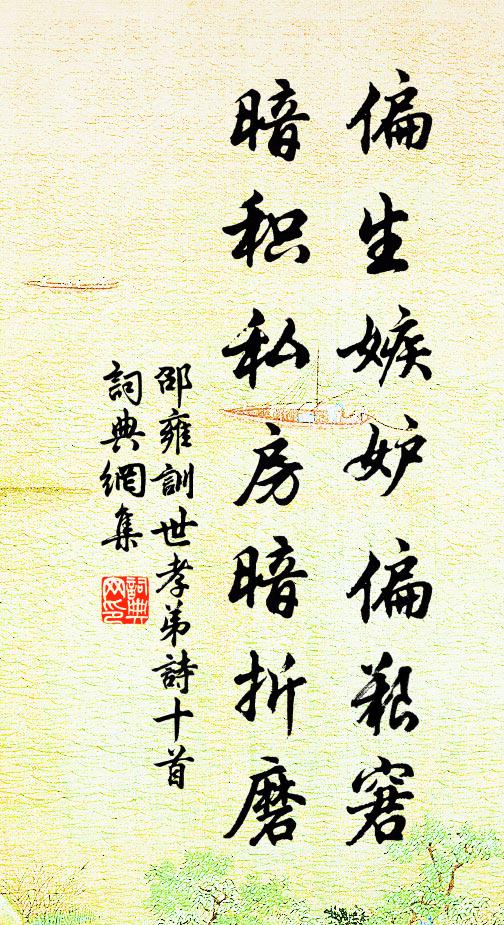 偏生嫉妒偏艱窘
暗积私房暗折磨
邵雍訓世孝弟詩十首
詞典網集
詞典网印